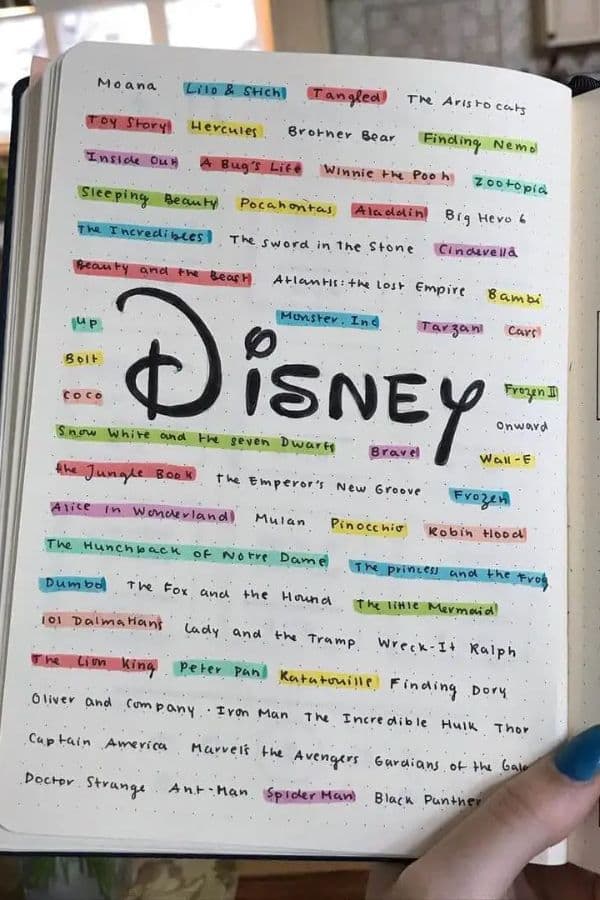 Moana Lilo & Stich Tangled The Aristocats
Toy Story Hercules Brother Bear Finding Nemo
Inside Out A Bug's Life Winnie the Pooh Zootopia
Sleeping Beauty Pocahontas Aladdin Big Hero 6
The Incredibles The Sword in the Stone Cinderella
Beauty and the Beast Atlantis: the Lost Empire Bambi
Up Monster. Inc Tarzan Cars
Bolt
Coco
Disney
Frozen II
Onward
Snow White and the seven Dwarfs Brave Wall-E
The Jungle Book The Emperor's New Groove Frozen
Alice in Wonderland Mulan Pinocchio Robin Hood
The Hunchback of Notre Dame The princess and the Frog
Dumbo The Fox and the Hound The little Mermaid
101 Dalmatians Lady and the Tramp Wreck-It Ralph
The Lion King Peter Pan Ratatouille Finding Dory
Oliver and Company · Iron Man The Incredible Hulk Thor
Captain America Marvel's the Avengers Gardians of the Gala
Doctor Strange Ant-Man Spider Man Black Panther